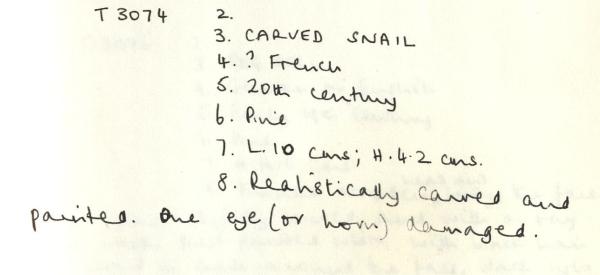 T 3074 2.
3. CARVED SNAIL
4. ? French
5. 20th century
6. Pine
7. L.10 cms; H.4.2 cms.
8. Realistically carved and
painted. One eye (or horn) damaged.